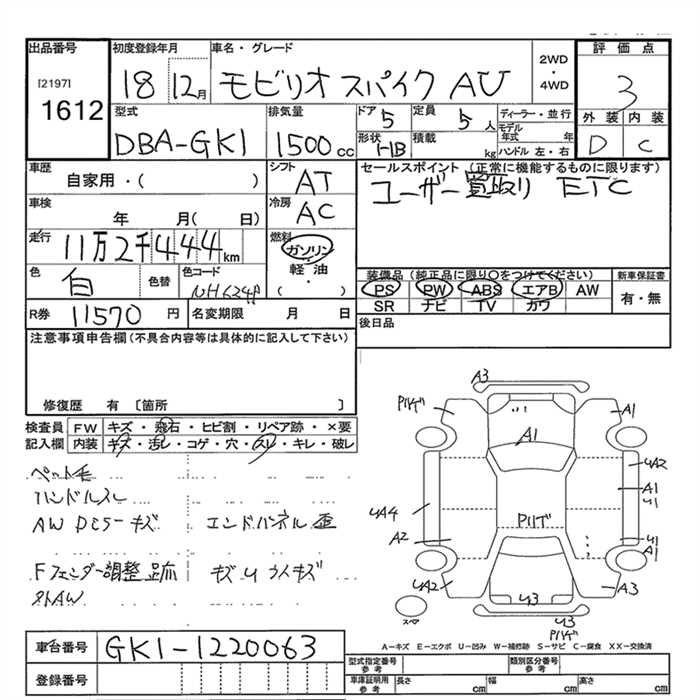 出品番号 初度登録年月 車名・グレード 2WD・4WD 評価点
[2197] 1612 18 12月 モビリオ スパイク AU 3
型式 排気量 ドア 定員 ディーラー・並行 外装 内装
DBA-GK1 1500cc 5 5人 モデル年式 年 D C
形状 積載 kg ハンドル 左・右
車歴 シフト セールスポイント (正常に機能するものに限ります)
自家用・( ) AT ユーザー買取り ETC
車検 冷房
年 月( 日) AC
走行 燃料
11万2千444km ガソリン
軽油
・
( )
色 色替 色コード 装備品 (純正品に限り〇をつけてください) 新車保証書
白 PS PW ABS エアB AW 有・無
SR ナビ TV カワ
R券 11570円 名変期限 月 日 後日品
注意事項申告欄(不具合内容等は具体的に記入して下さい)
修復歴 有 〔箇所 〕
検査員 FW キズ・飛石・ヒビ割・リペア跡・×要
記入欄 内装 キズ・汚レ・コゲ・穴・スレ・キレ・破レ
ペット毛
ハンドルスレ
AW キズ エンドパネル歪
Fフェンダー調整跡 キズU
外AW
A3
A1
A1
UA2
A1
U1
UA4
Pリゲ
A2
U1
A1
UA2
A3
U3
U3
Pリゲ
スペア
A-キズ E-エクボ U-凹み W-補修跡 S-サビ C-腐食 XX-交換済
車台番号 GK1-1220063
登録番号
型式指定番号 参考 類別区分番号 参考
車庫証明用 参考 長さ cm 幅 cm 高さ cm